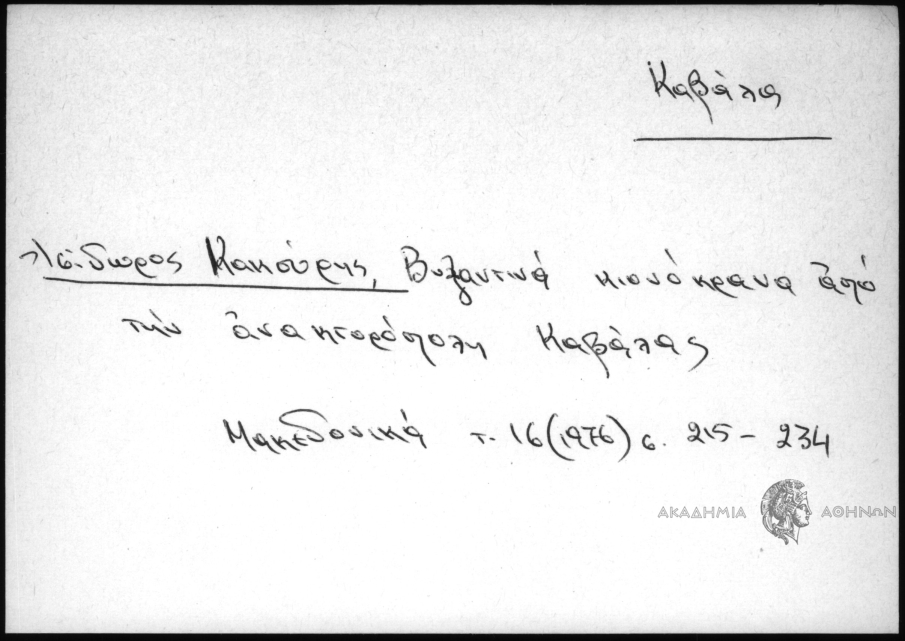 Καβάλα
Ἰσίδωρος Κακούρης, Βυζαντινά κιονόκρανα ἀπό
τήν ἀνακτορόπολη Καβάλας
Μακεδονικά τ. 16 (1976) σ. 215 - 234
ΑΚΑΔΗΜΙΑ ΑΘΗΝΩΝ